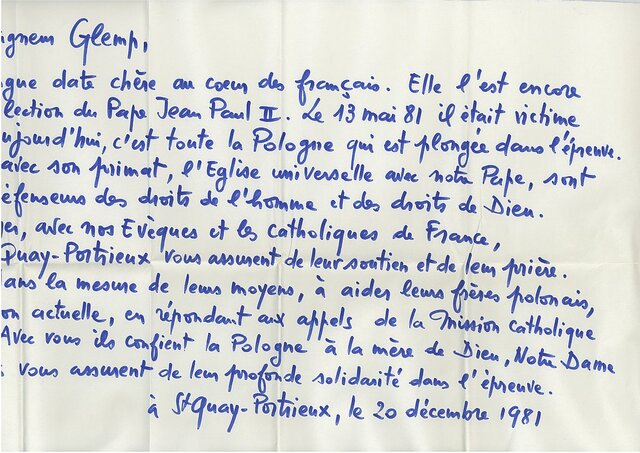 igneur Glemp,
gue date chère au coeur des français. Elle l'est encore
lection du Pape Jean Paul II. Le 13 mai 81 il était victime
ujourd'hui, c'est toute la Pologne qui est plongée dans l'épreuve.
avec son primat, l'Eglise universelle avec notre Pape, sont
éfenseurs des droits de l'homme et des droits de Dieu.
er, avec nos Evèques et les catholiques de France,
Quay-Portrieux vous assurent de leur soutien et de leur prière.
ans la mesure de leurs moyens, à aider leurs frères polonais,
on actuelle, en répondant aux appels de la Mission catholique
Avec vous ils confient la Pologne à la mère de Dieu, Notre Dame
vous assurent de leur profonde solidarité dans l'épreuve.
à St Quay-Portrieux, le 20 décembre 1981